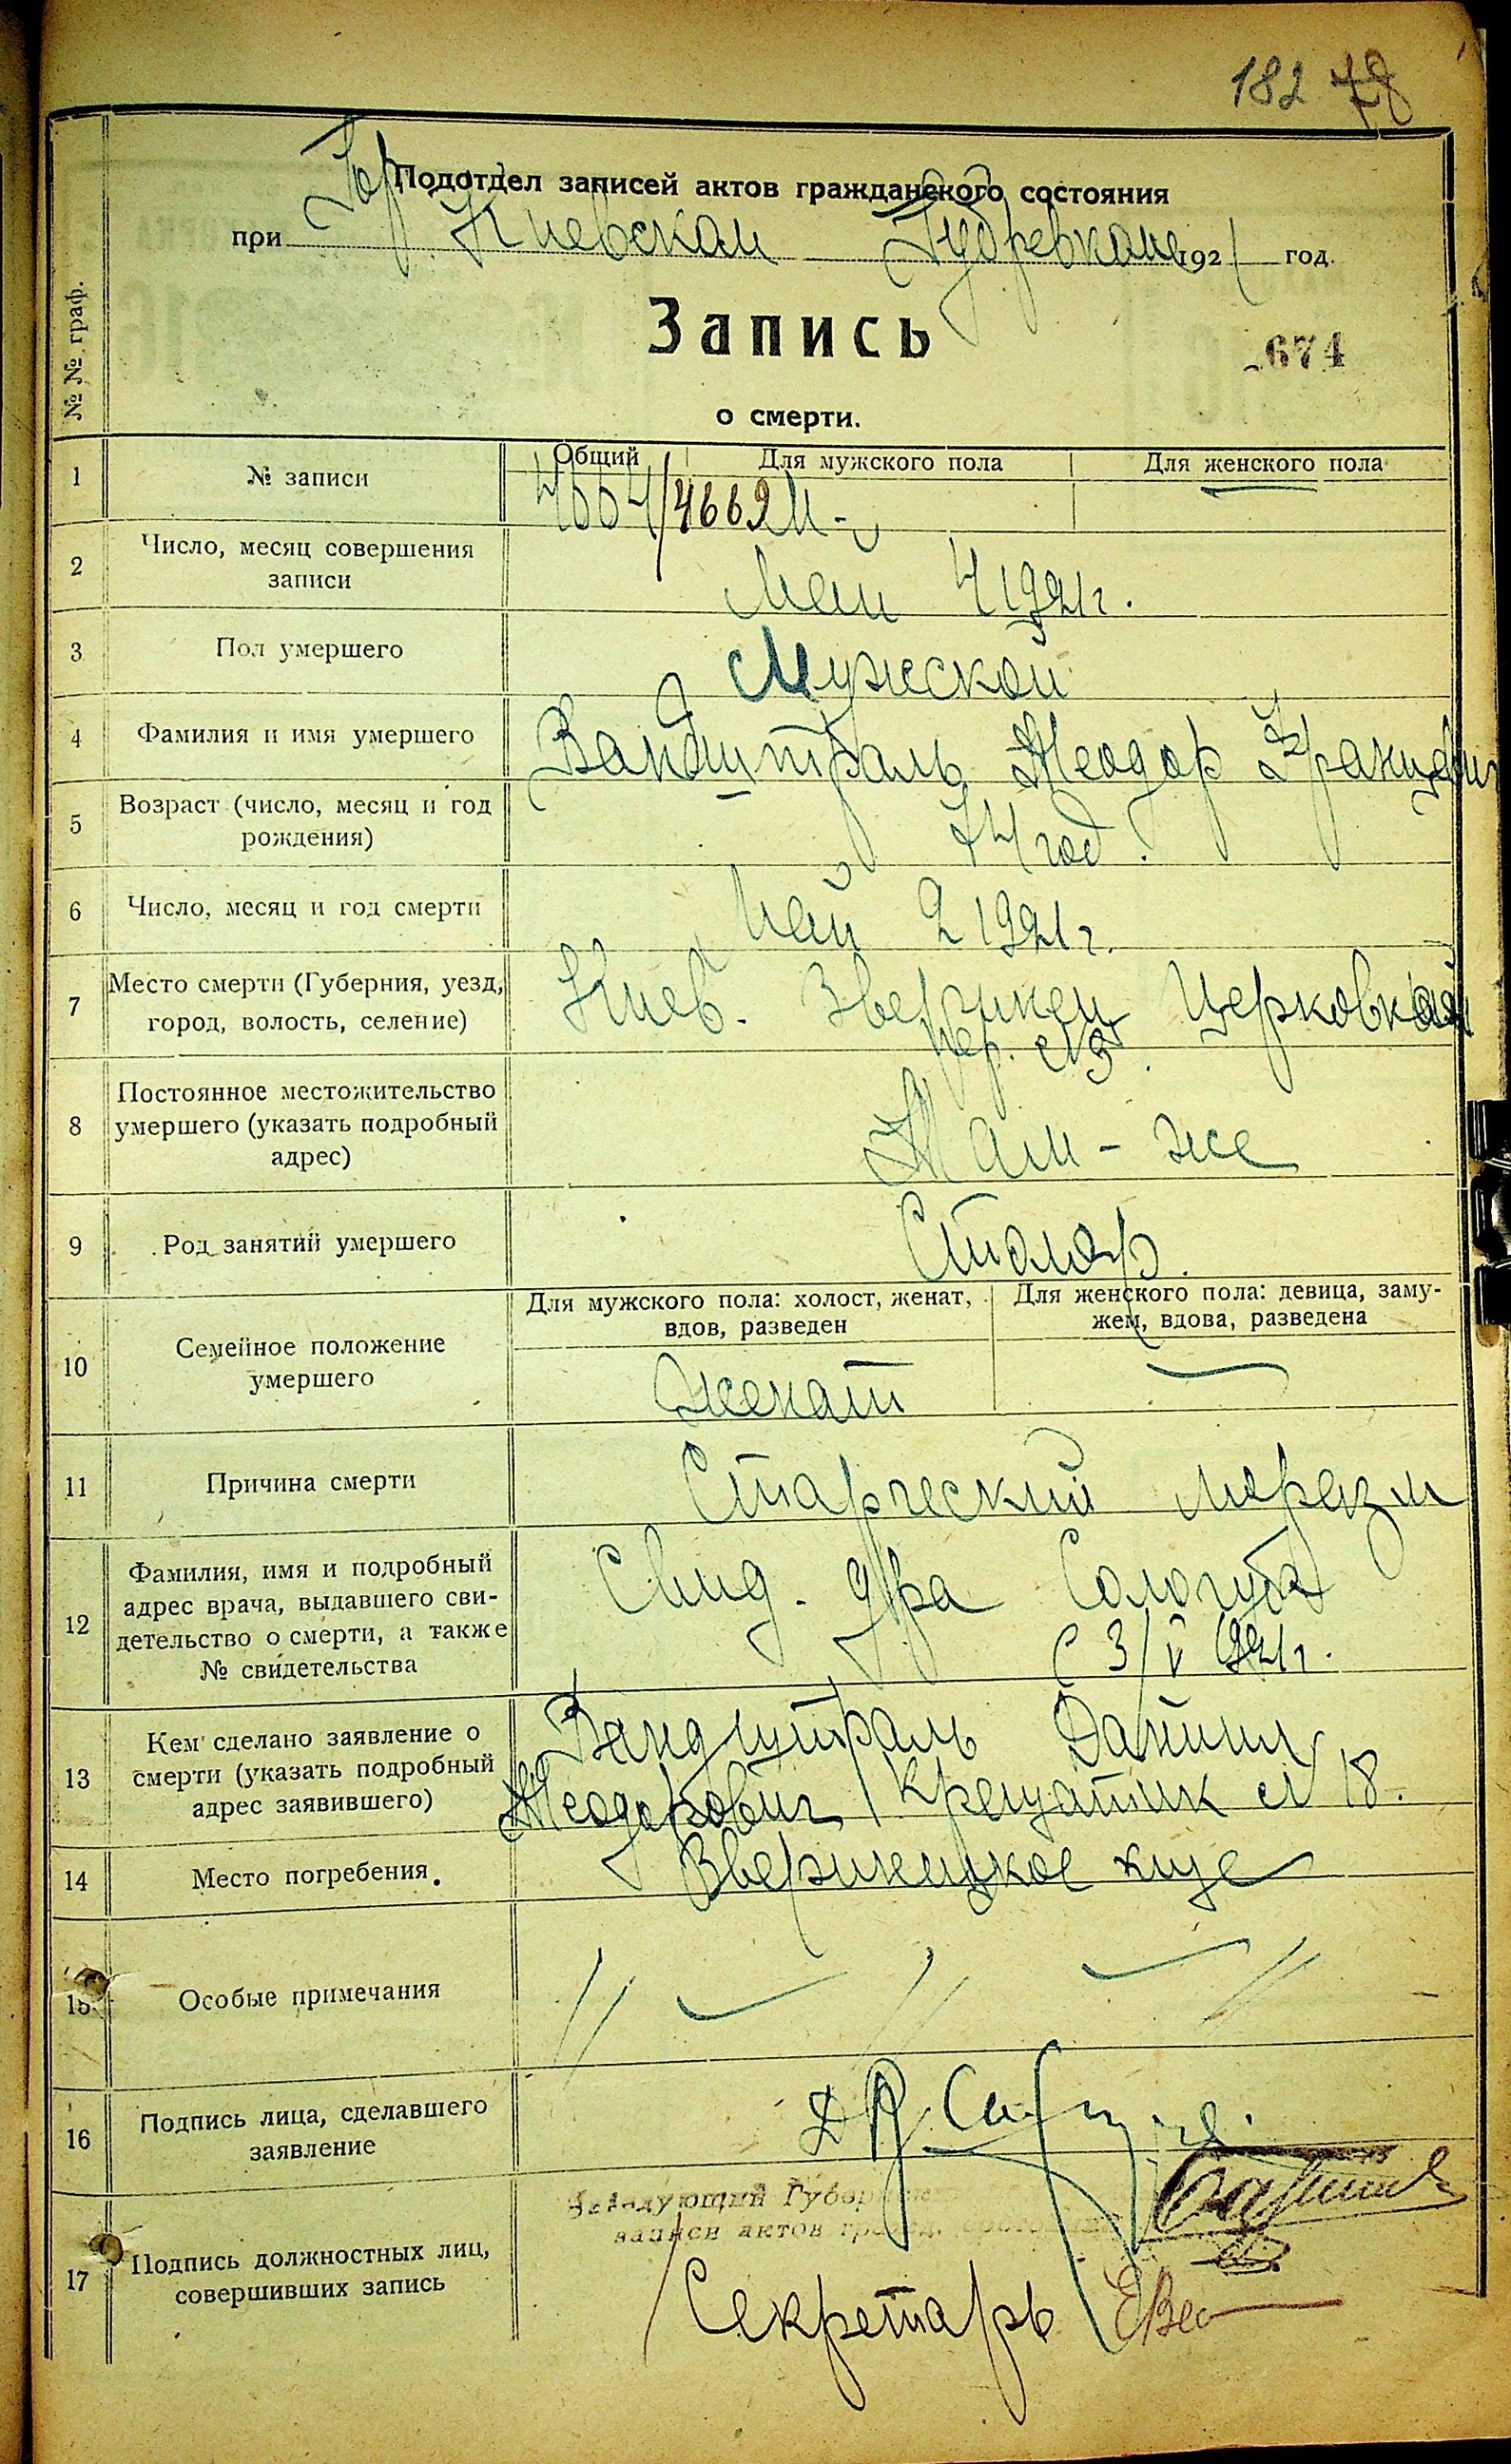 182 78
Гор
Подотдел записей актов гражданского состояния
при Киевском Губревкоме 1921 год.
№ № граф.
Запись
674
о смерти.
Общий Для мужского пола Для женского пола
1 № записи 4664/4669 М-
2 Число, месяц совершения
записи
Май 4 1921 г.
3 Пол умершего Мужской
4 Фамилия и имя умершего Вандштраль Теодор Францевич
5 Возраст (число, месяц и год
рождения)
74 год.
6 Число, месяц и год смерти Май 2 1921 г.
7 Место смерти (Губерния, уезд,
город, волость, селение)
Киев. Зверинец Церковная
пер. №3
8 Постоянное местожительство
умершего (указать подробный
адрес)
Там-же
9 Род занятий умершего Столяр.
Для мужского пола: холост, женат,
вдов, разведен
Для женского пола: девица, заму-
жем, вдова, разведена
10 Семейное положение
умершего
женат
11 Причина смерти Старческий маразм
12 Фамилия, имя и подробный
адрес врача, выдавшего сви-
детельство о смерти, а также
№ свидетельства
Свид. д/ра Сологуба
с 3/V 1921 г.
13 Кем сделано заявление о
смерти (указать подробный
адрес заявившего)
Вандштраль Даниил
Теодорович Крещатик № 18.
14 Место погребения. Зверинецкое кще
15 Особые примечания
16 Подпись лица, сделавшего
заявление
17 Подпись должностных лиц,
совершивших запись
Заведующий
записи актов
Секретарь